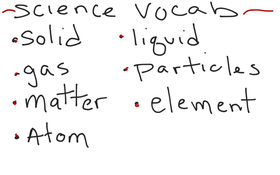 Science Vocab
• Solid
• liquid
• gas
• Particles
• matter
• element
• Atom